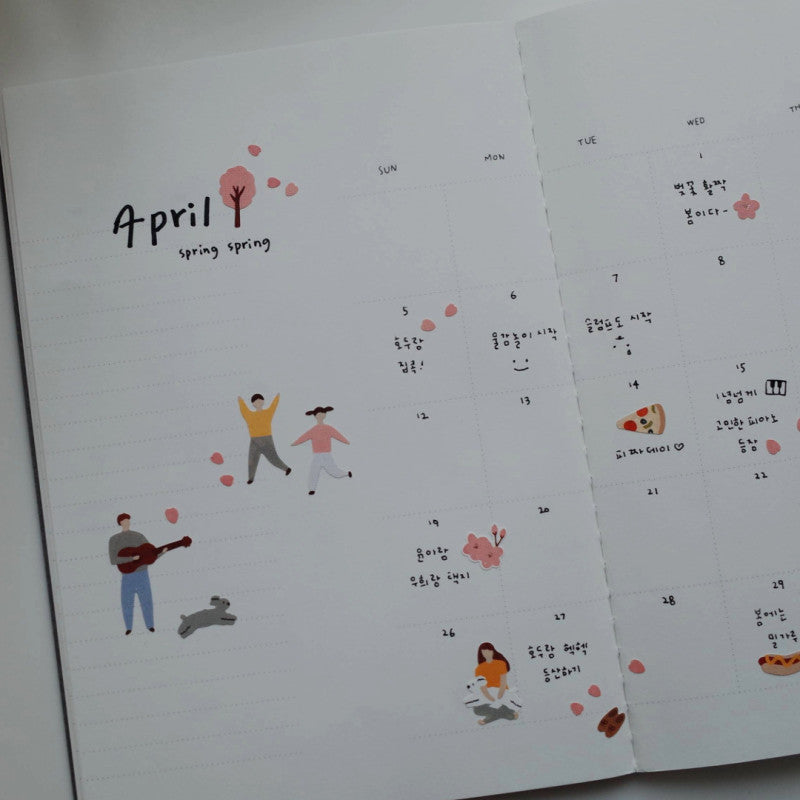 April
spring spring
SUN
MON
TUE
WED
TH
1
벚꽃 활짝
봄이다~
5
호두랑
집콕!
6
물감놀이 시작
7
슬럼프도 시작
8
12
13
14
피짜데이♡
15
1년넘게
고민한 피아노
등장
19
윤아랑
우희랑 택지
20
21
22
26
27
호두랑 헥헥
등산하기
28
29
봄에는
밀가루